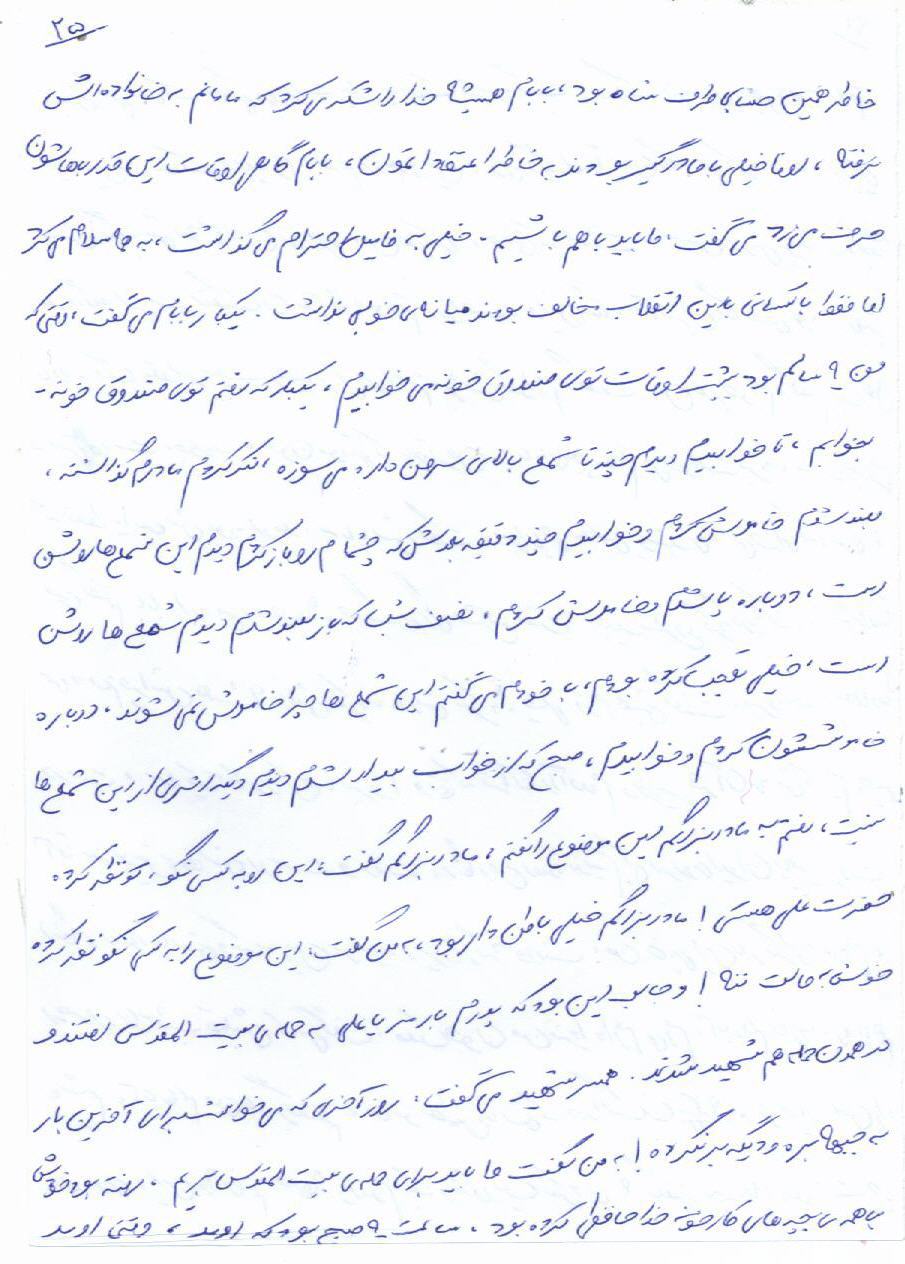 ۲۵
خاطر همین حساب طرف شاه بود، بابام همیشه خدا را شکر می کرد که مامانم به خانواده اش
نرفته، اونا خیلی با مادرگیر بودند به خاطر اعتقاداتمون، بابام گاهی اوقات این قدر باهاشون
حرف می زد می گفت، ما باید با هم باشیم. خیلی به فامیل احترام می گذاشت، به همه سلام می کرد
اما فقط با کسانی با این انقلاب مخالف بودند میانه ی خوبی نداشت. یکبار بابام می گفت، وقتی که
من ۹ سالم بود بیشتر اوقات توی صندوق خونه می خوابیدم، یکبار که رفتم توی صندوق خونه -
بخوابم، تا خوابیدم دیدم چند تا شمع بالای سر من داره می سوزه، فکر کردم مادرم گذاشته،
بلند شدم خاموش کردم و خوابیدم چند دقیقه بعدش که چشمام رو باز کردم دیدم این شمع ها روشن
است، دوباره پا شدم و خاموش کردم، نصف شب که باز بلند شدم دیدم شمع ها روشن
است، خیلی تعجب کرده بودم، با خودم می گفتم این شمع ها چرا خاموش نمی شوند، دوباره
خاموششون کردم و خوابیدم، صبح که از خواب بیدار شدم دیدم دیگه اثری از این شمع ها
نیست، رفتم به مادربزرگم این موضوع را گفتم، مادربزرگم گفت، این رو به کسی نگو، تو نظر کرده
حضرت علی هستی! مادربزرگم خیلی باطن دار بود، به من گفت: این موضوع را به کسی نگو نظر کرده
خوش به حالت ننه! و جالب این بود که پدرم با رمز یا علی به حمله ی بیت المقدس رفتند و
در همون حمله هم شهید شدند. همسر شهید می گفت، روز آخری که می خواست برای آخرین بار
به جبهه بره و دیگه برنگرده! به من گفت ما باید برای حمله ی بیت المقدس بریم. رفته بود خودش
با همه ی بچه های کارخونه خداحافظی کرده بود، ساعت ۹ صبح بود که اومد، وقتی اومد